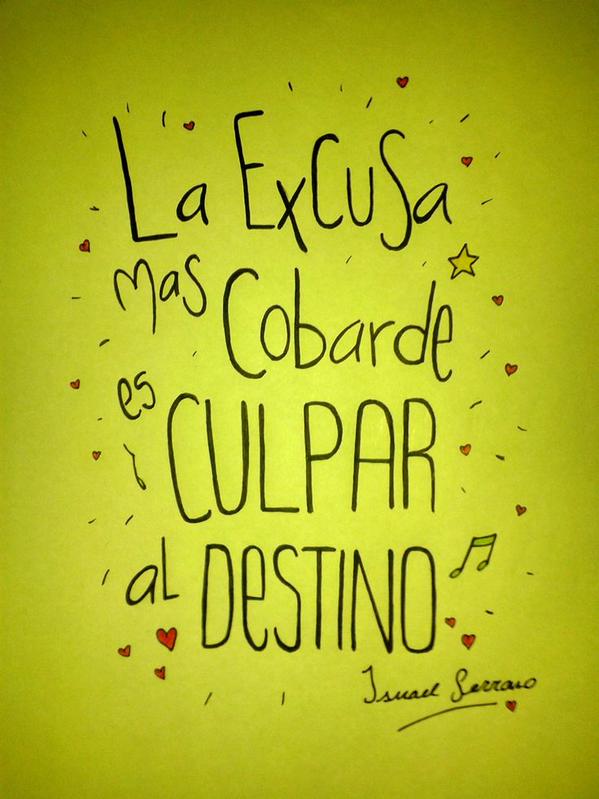 La Excusa
mas Cobarde
es CULPAR
al DeSTINO
Ismael Serrano